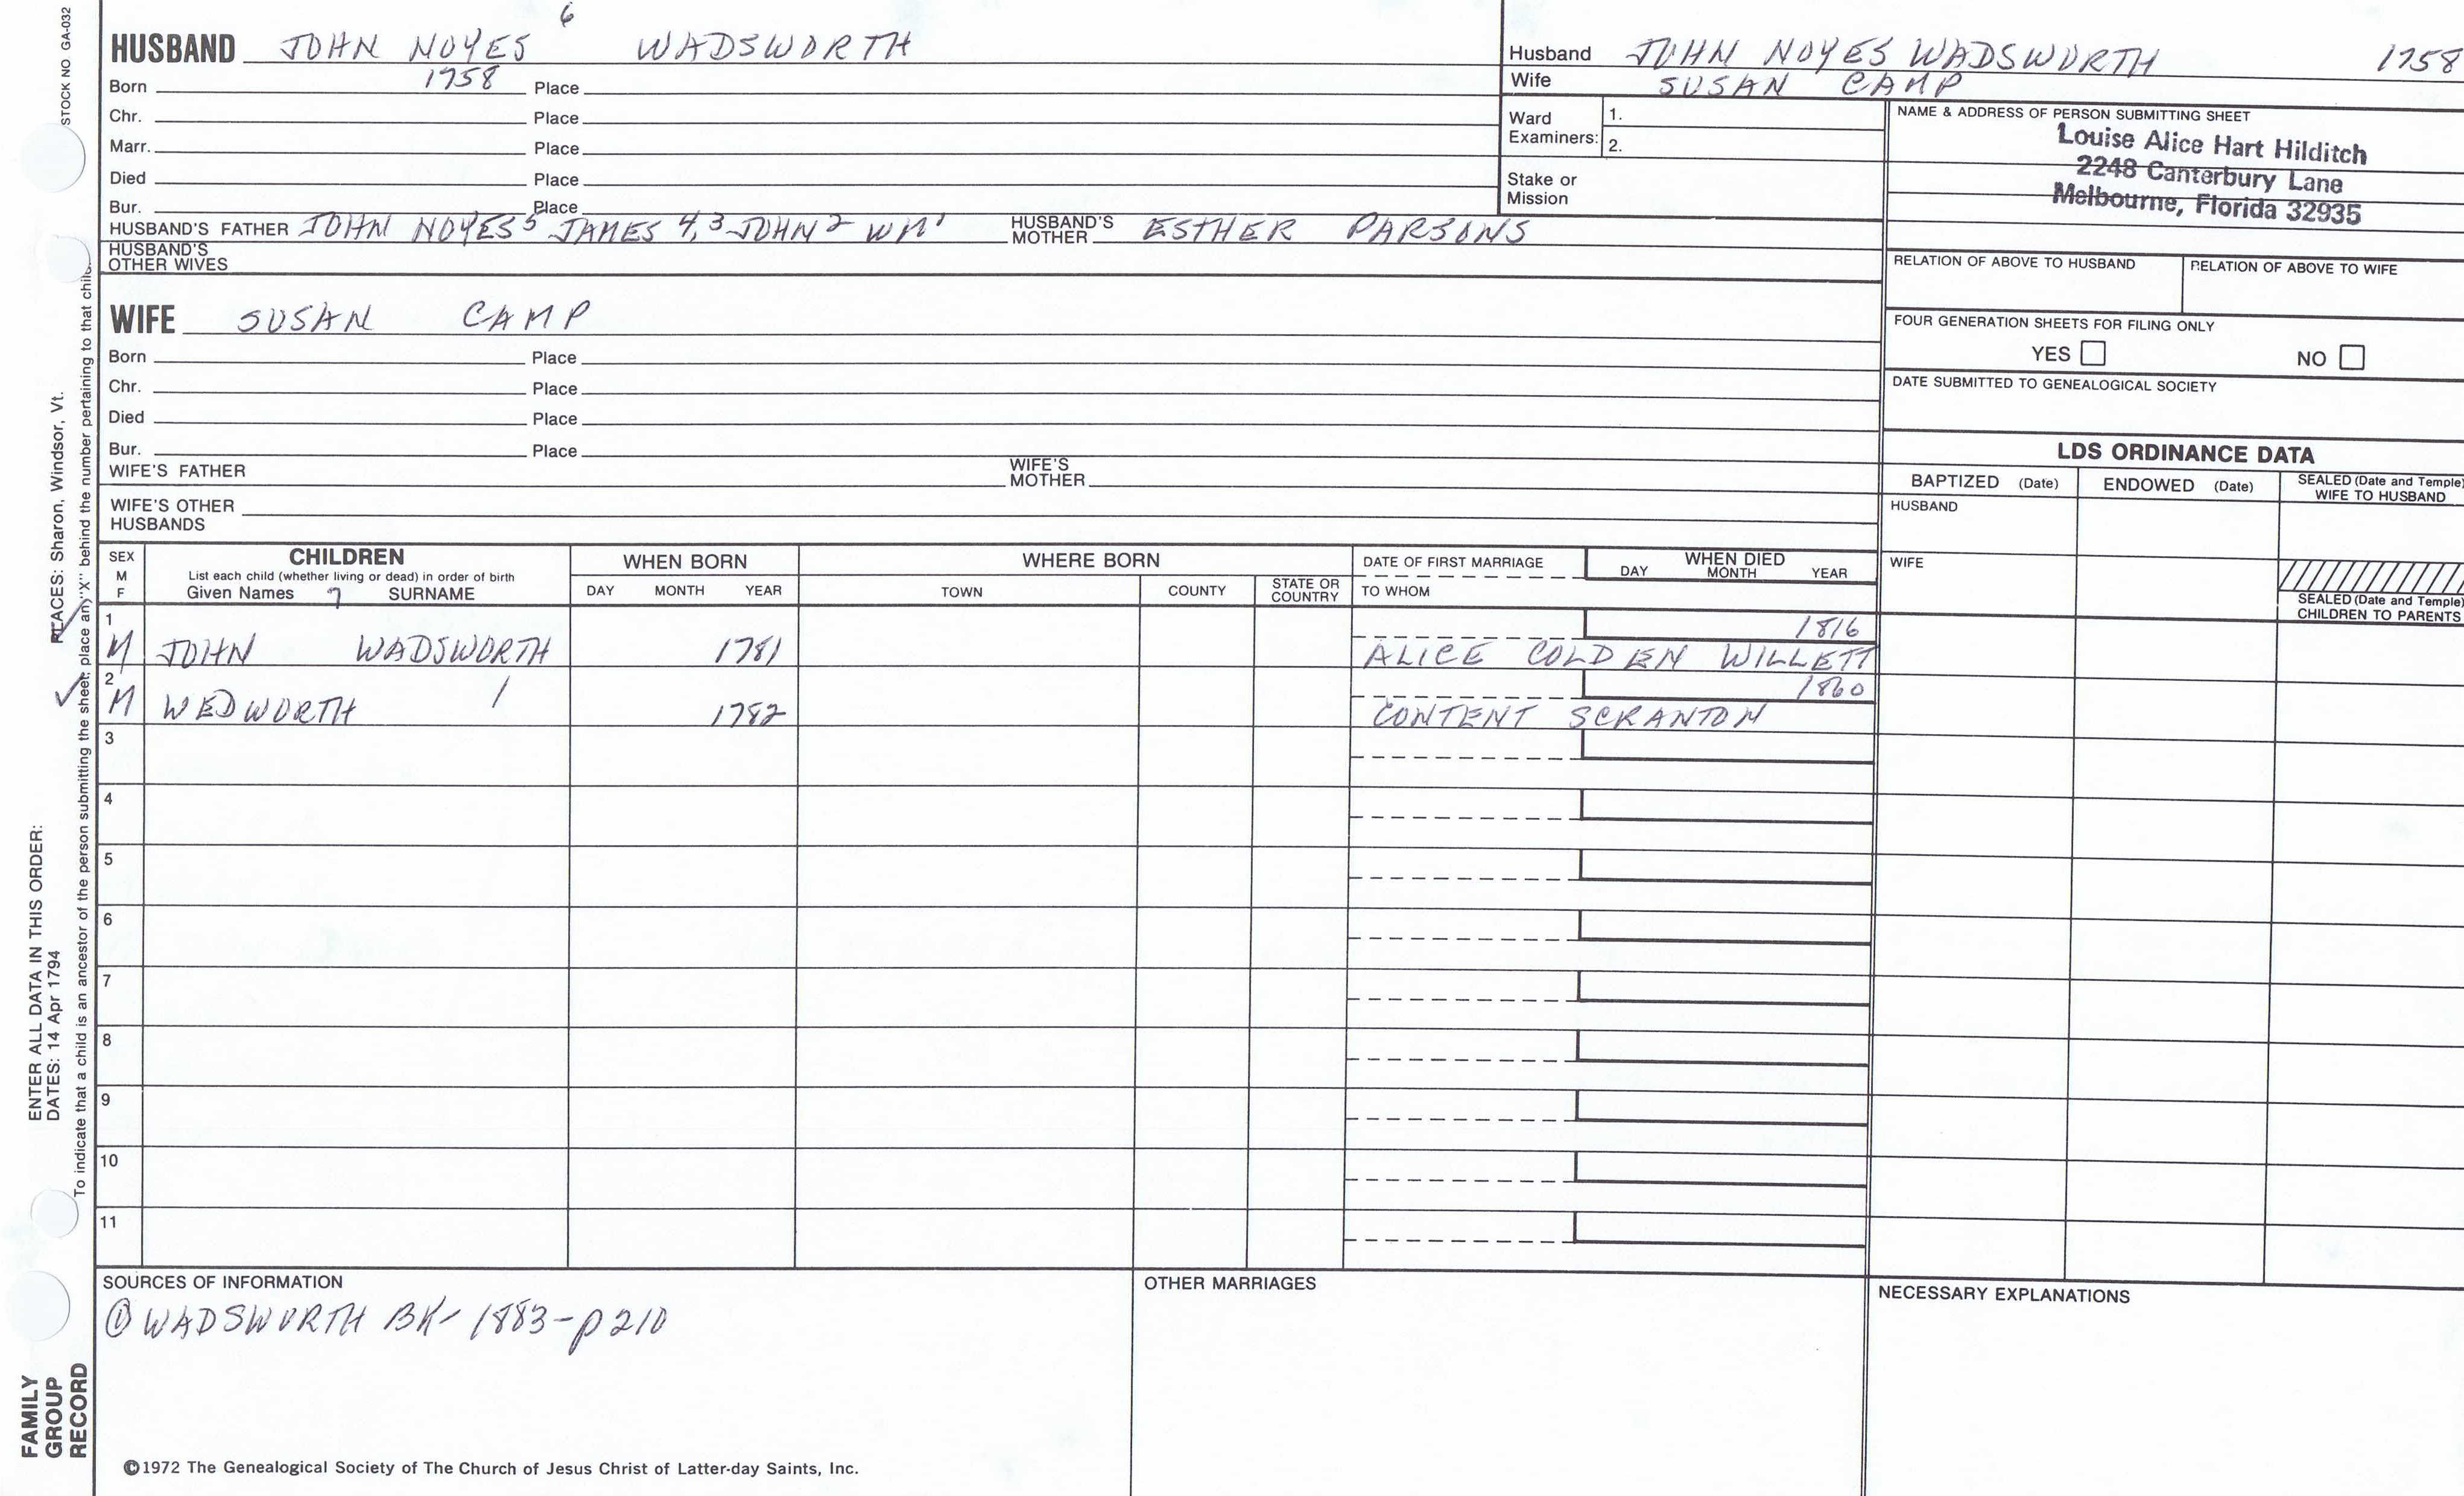 6
HUSBAND JOHN NOYES WADSWORTH
Born 1758 Place
Chr. Place
Marr. Place
Died Place
Bur. Place
HUSBAND'S FATHER JOHN NOYES5 JAMES 4,3 JOHN2 WM1 HUSBAND'S MOTHER ESTHER PARSONS
HUSBAND'S OTHER WIVES
WIFE SUSAN CAMP
Born Place
Chr. Place
Died Place
Bur. Place
WIFE'S FATHER WIFE'S MOTHER
WIFE'S OTHER HUSBANDS
Husband JOHN NOYES WADSWORTH 1758
Wife SUSAN CAMP
Ward Examiners: 1.
2.
Stake or Mission
NAME & ADDRESS OF PERSON SUBMITTING SHEET
Louise Alice Hart Hilditch
2248 Canterbury Lane
Melbourne, Florida 32935
RELATION OF ABOVE TO HUSBAND RELATION OF ABOVE TO WIFE
FOUR GENERATION SHEETS FOR FILING ONLY
YES NO
DATE SUBMITTED TO GENEALOGICAL SOCIETY
LDS ORDINANCE DATA
BAPTIZED (Date) ENDOWED (Date) SEALED (Date and Temple) WIFE TO HUSBAND
HUSBAND
WIFE
SEALED (Date and Temple) CHILDREN TO PARENTS
SEX M F CHILDREN WHEN BORN WHERE BORN DATE OF FIRST MARRIAGE WHEN DIED
List each child (whether living or dead) in order of birth
Given Names 7 SURNAME DAY MONTH YEAR TOWN COUNTY STATE OR COUNTRY TO WHOM DAY MONTH YEAR
1 1816
M JOHN WADSWORTH 1781 ALICE COLDEN WILLETT
2 1860
M WEDWORTH / 1782 CONTENT SCRANTON
3
4
5
6
7
8
9
10
11
SOURCES OF INFORMATION OTHER MARRIAGES NECESSARY EXPLANATIONS
① WADSWORTH BK- 1883-p210
©1972 The Genealogical Society of The Church of Jesus Christ of Latter-day Saints, Inc.
STOCK NO GA-032
FAMILY GROUP RECORD
ENTER ALL DATA IN THIS ORDER:
DATES: 14 Apr 1794 PLACES: Sharon, Windsor, Vt.
To indicate that a child is an ancestor of the person submitting the sheet, place an "X" behind the number pertaining to that child.